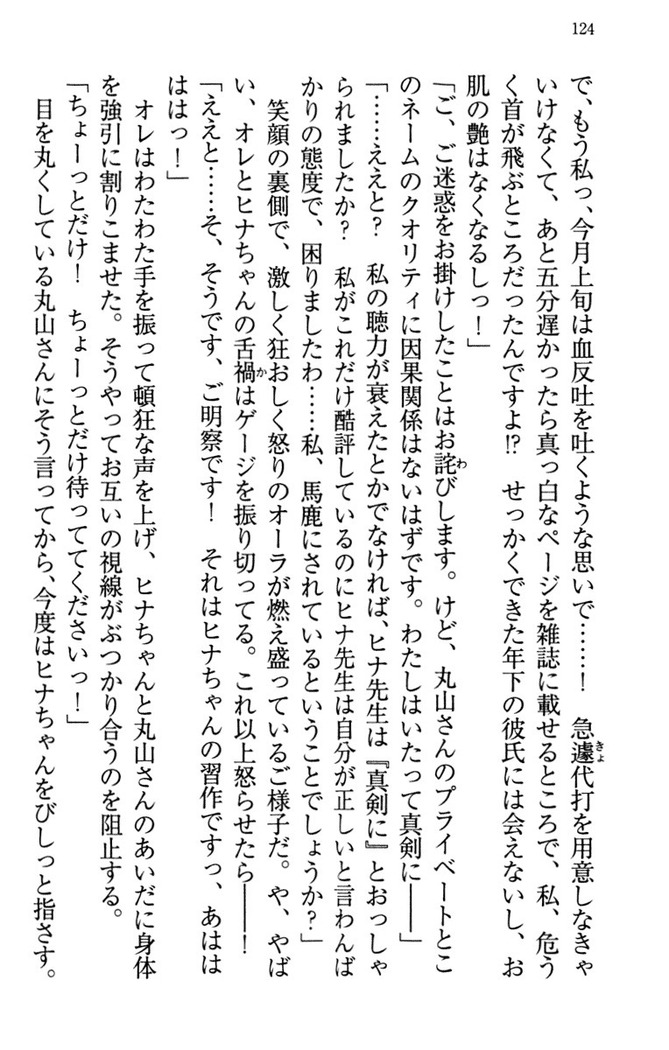 124
で、もう私っ、今月上旬は血反吐を吐くような思いで……！　急遽代打を用意しなきゃ
いけなくて、あと五分遅かったら真っ白なページを雑誌に載せるところで、私、危う
く首が飛ぶところだったんですよ!?　せっかくできた年下の彼氏には会えないし、お
肌の艶はなくなるしっ！」
「ご、ご迷惑をお掛けしたことはお詫びします。けど、丸山さんのプライベートとこ
のネームのクオリティに因果関係はないはずです。わたしはいたって真剣に――」
「……ええと？　私の聴力が衰えたとかでなければ、ヒナ先生は『真剣に』とおっしゃ
られましたか？　私がこれだけ酷評しているのにヒナ先生は自分が正しいと言わんば
かりの態度で、困りましたわ……私、馬鹿にされているということでしょうか？」
　笑顔の裏側で、激しく狂おしく怒りのオーラが燃え盛っているご様子だ。や、やば
い、オレとヒナちゃんの舌禍はゲージを振り切ってる。これ以上怒らせたら――！
「ええと……そ、そうです、ご明察です！　それはヒナちゃんの習作ですっ、あはは
ははっ！」
　オレはわたわた手を振って頓狂な声を上げ、ヒナちゃんと丸山さんのあいだに身体
を強引に割りこませた。そうやってお互いの視線がぶつかり合うのを阻止する。
「ちょーっとだけ！　ちょーっとだけ待っててくださいっ！」
　目を丸くしている丸山さんにそう言ってから、今度はヒナちゃんをびしっと指さす。